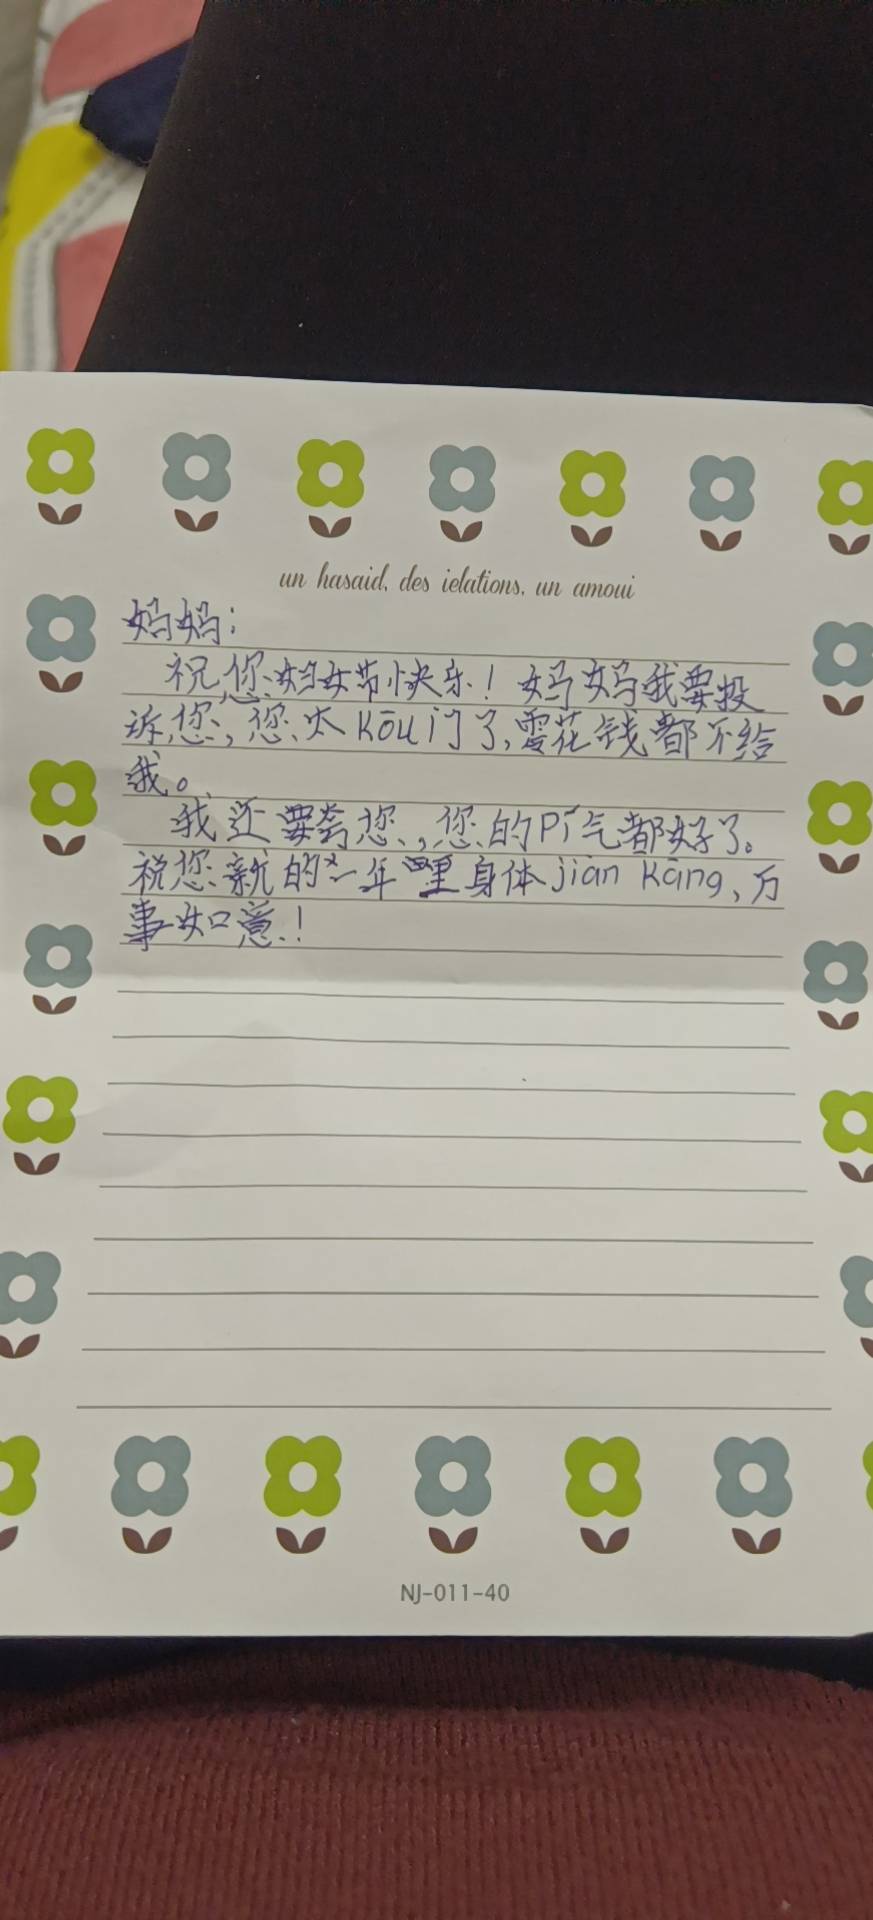 un hasaid, des ielations, un amoui
妈妈:
祝您妇女节快乐！妈妈我要投
诉您，您太kōu门了,零花钱都不给
我。
我还要夸您,您的pí气都好了。
祝您新的一年里身体jiàn kāng、万
事如意！
NJ-011-40